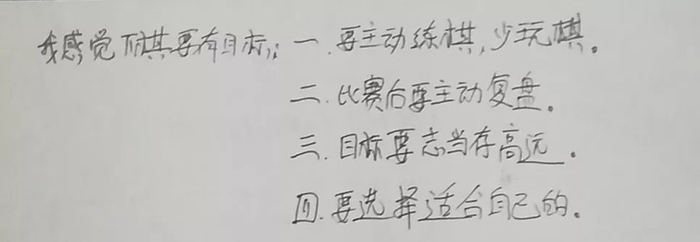 我感觉下棋要有目标：一.要主动练棋，少玩棋。
二.比赛后要主动复盘。
三.目标要志当存高远。
四.要选择适合自己的。